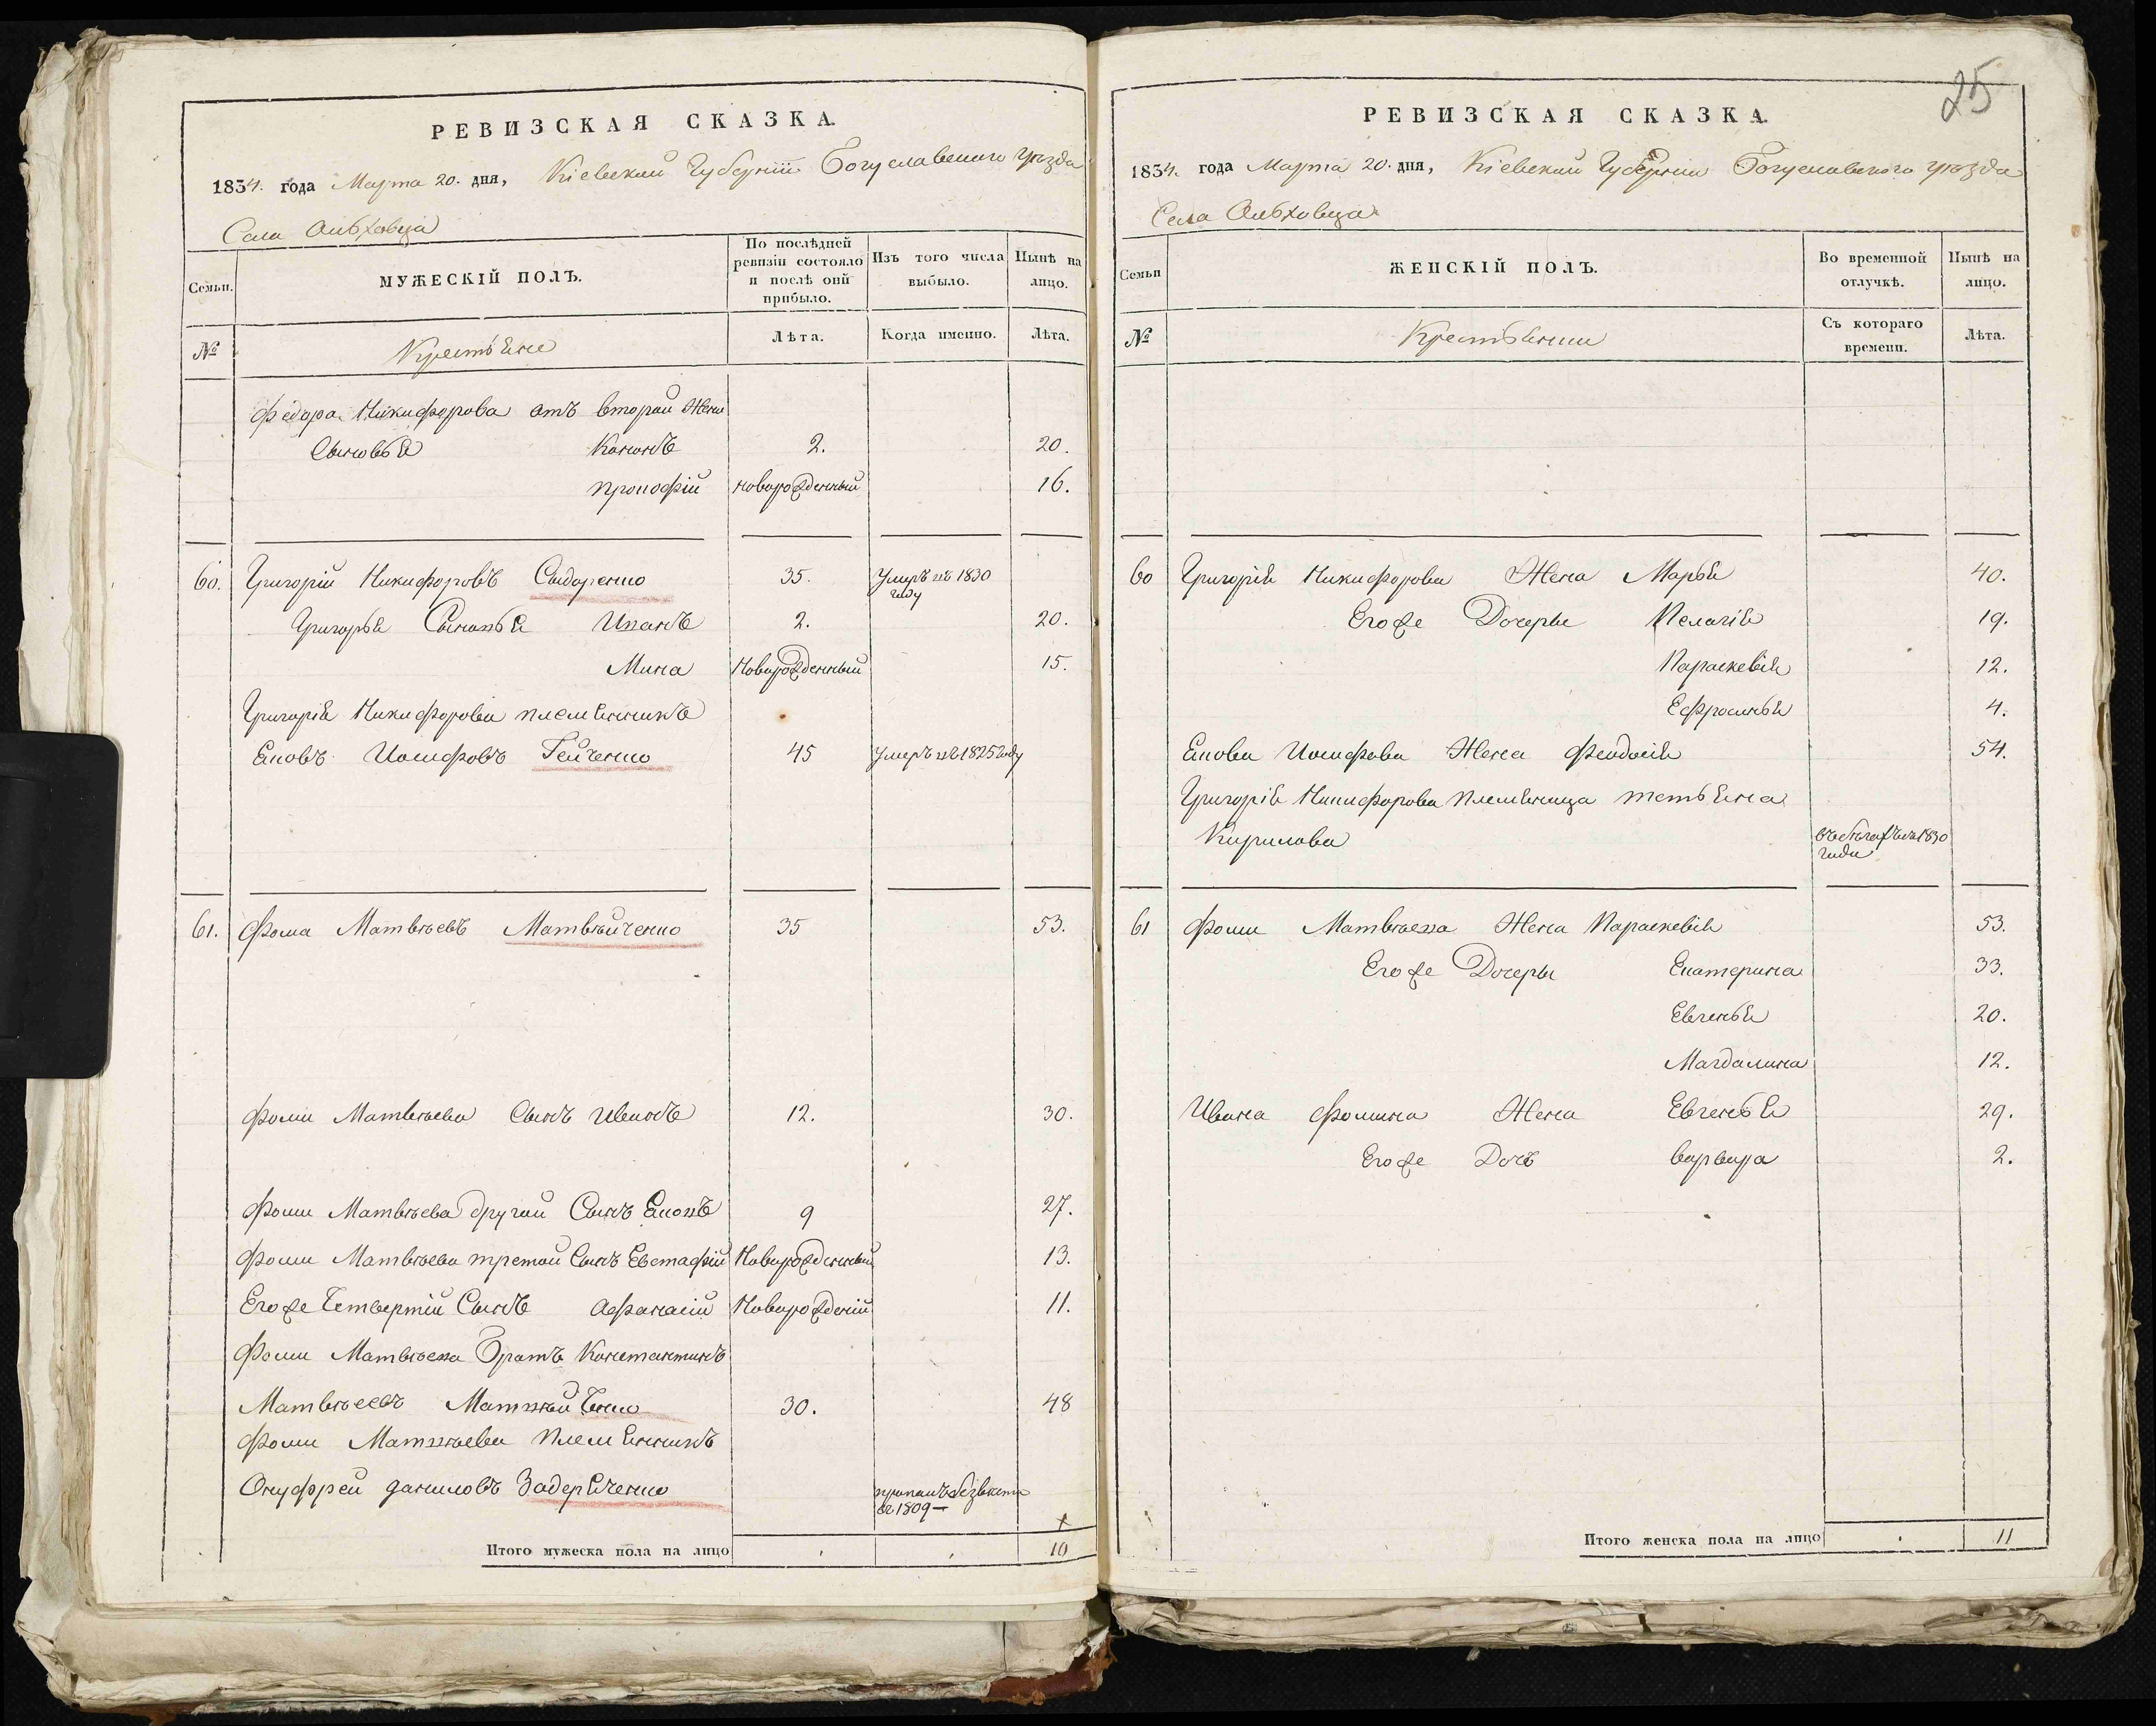 РЕВИЗСКАЯ СКАЗКА.
1834. года Марта 20. дня, Кіевской Губерніи Богуславского уѣзда
Села Ольховца
Семьи.
МУЖЕСКІЙ ПОЛЪ.
По послѣдней ревизіи состояло и послѣ оной прибыло.
Изъ того числа выбыло.
Нынѣ на лицо.
№
Крестьяне
Лѣта.
Когда именно.
Лѣта.
Федора Никифорова отъ второй Жены
Сыновья Кононъ 2. 20.
Прокофій новорожденный 16.
60. Григорій Никифоровъ Сидоренко 35. Умеръ въ 1830 году
Григорья Сыновья Иванъ 2. 20.
Мина Новорожденный 15.
Григорія Никифорова племянникъ
Яковъ Иосифовъ Гейченко 45 Умеръ въ 1825 году
61. Фома Матвѣевъ Матвѣйченко 35 53.
Фомы Матвѣева Сынъ Иванъ 12. 30.
Фомы Матвѣева другой Сынъ Яковъ 9 27.
Фомы Матвѣева третой Сынъ Евстафій Новорожденный 13.
Егоже Четвертій Сынъ Афанасій Новорожденій 11.
Фомы Матвѣева Братъ Константинъ
Матвѣевъ Матвѣйченко 30. 48
Фомы Матвѣева Племянникъ
Онуфрей Даниловъ Задерейченко пропалъ безвести въ 1809
Итого мужеска пола на лицо 10
25
РЕВИЗСКАЯ СКАЗКА.
1834. года Марта 20. дня, Кіевской Губерніи Богуславского уѣзда
Села Ольховца
Семьи
ЖЕНСКІЙ ПОЛЪ.
Во временной отлучкѣ.
Нынѣ на лицо.
№
Крестьянки
Съ котораго времени.
Лѣта.
60 Григорія Никифорова Жена Марья 40.
Егоже Дочеры Пелагія 19.
Параскевія 12.
Ефросинья 4.
Якова Иосифова Жена Феодосія 54.
Григорія Никифорова племяница татьяна
Кирилова въ бѣгахъ съ 1830 года
61 Фомы Матвѣева Жена Параскевія 53.
Егоже Дочеры Екатерина 33.
Евгенья 20.
Магдалина 12.
Ивана Фомина Жена Евгенья 29.
Егоже Дочь Варвара 2.
Итого женска пола на лицо 11